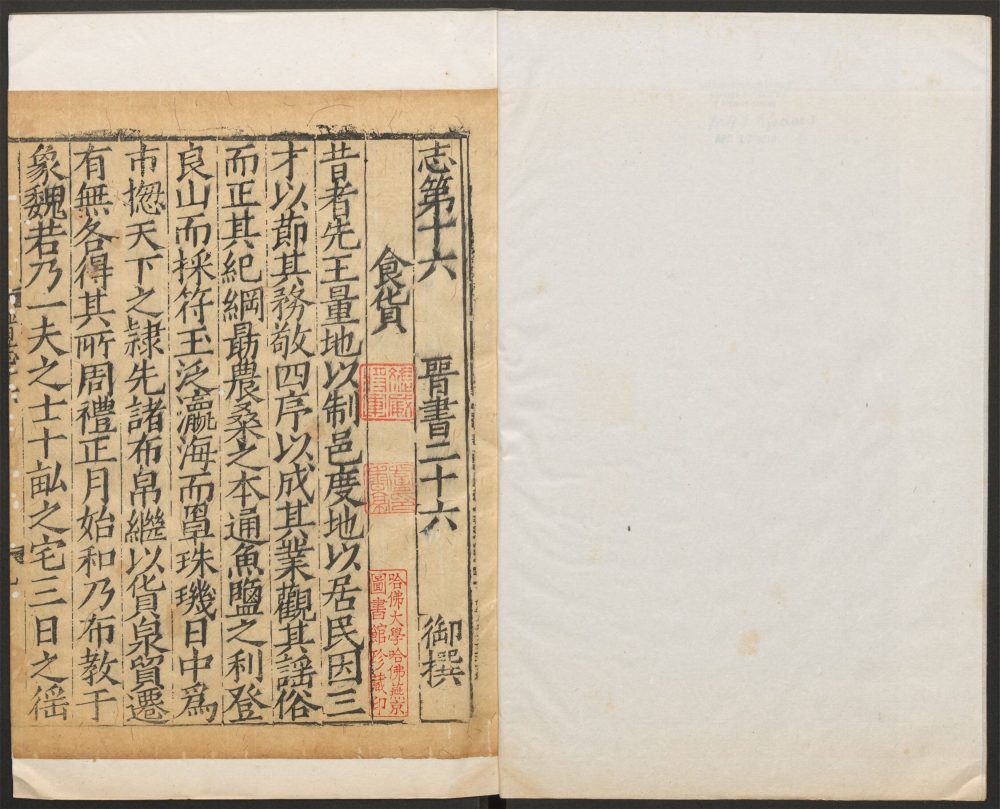 志第十六 晉書二十六 御撰
食貨
昔者先王量地以制邑度地以居民因三
才以節其務敬四序以成其業觀其謡俗
而正其紀綱勗農桑之本通魚鹽之利登
良山而採符玉泛瀛海而罩珠璣日中爲
市揔天下之隷先諸布帛繼以貨泉貿遷
有無各得其所周禮正月始和乃布教于
象魏若乃一夫之士十畝之宅三日之徭
哈佛大學哈佛燕京
圖書館珍藏印